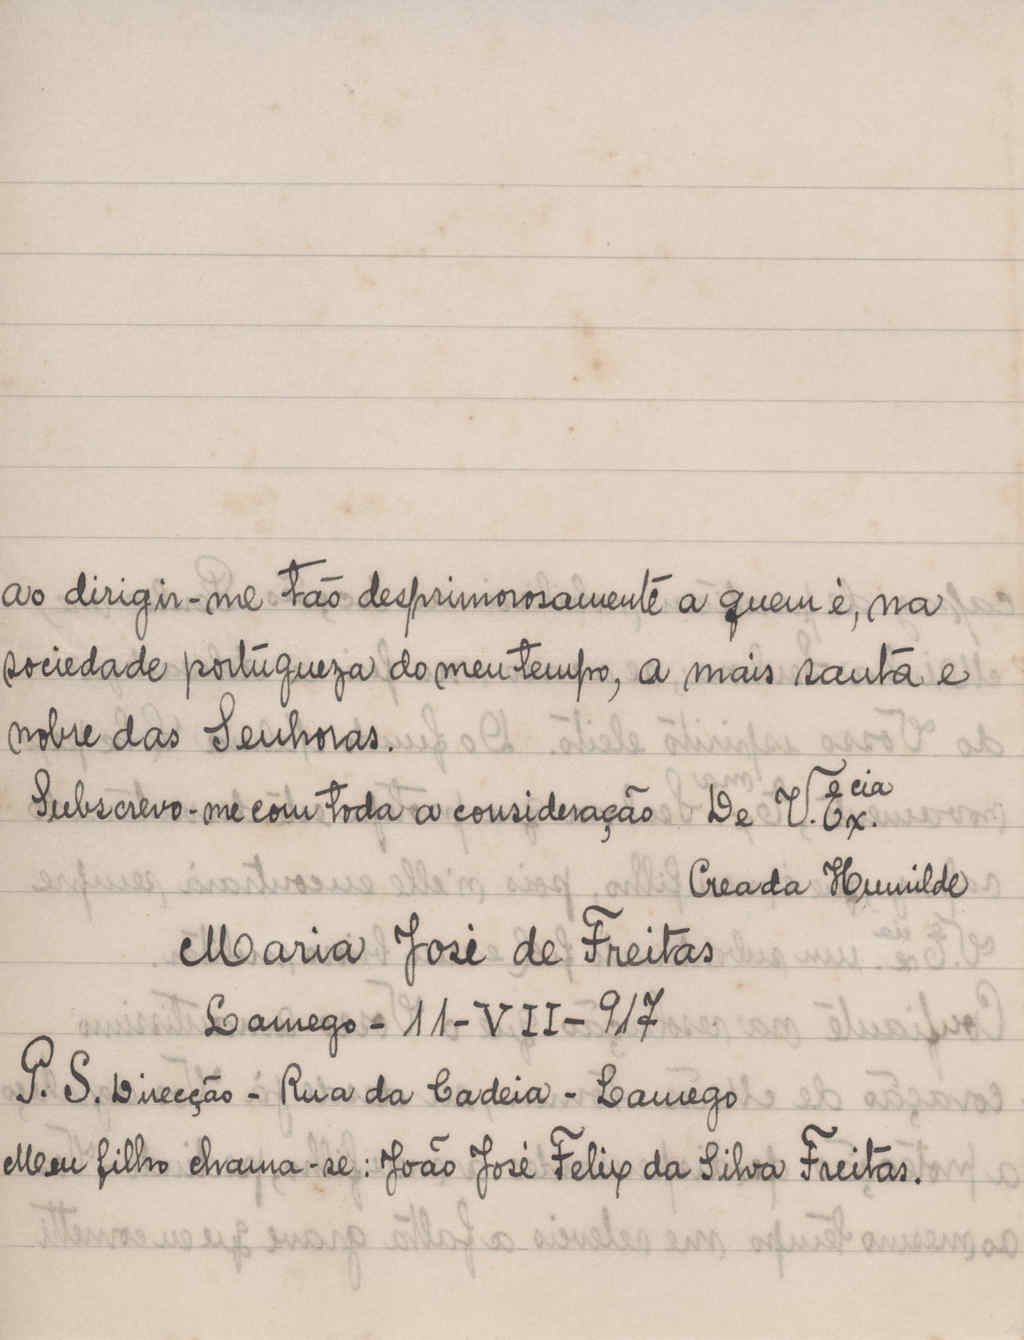 ao dirigir-me tão desprimorosamente a quem é, na
sociedade portugueza do meu tempo, a mais santa e
nobre das Senhoras.
Subscrevo-me com toda a consideração De V. Ex.cia
Creada Humilde
Maria José de Freitas
Lamego - 11-VII-917
P. S. Direcção - Rua da Cadeia - Lamego
Meu filho chama-se: João José Felix da Silva Freitas.